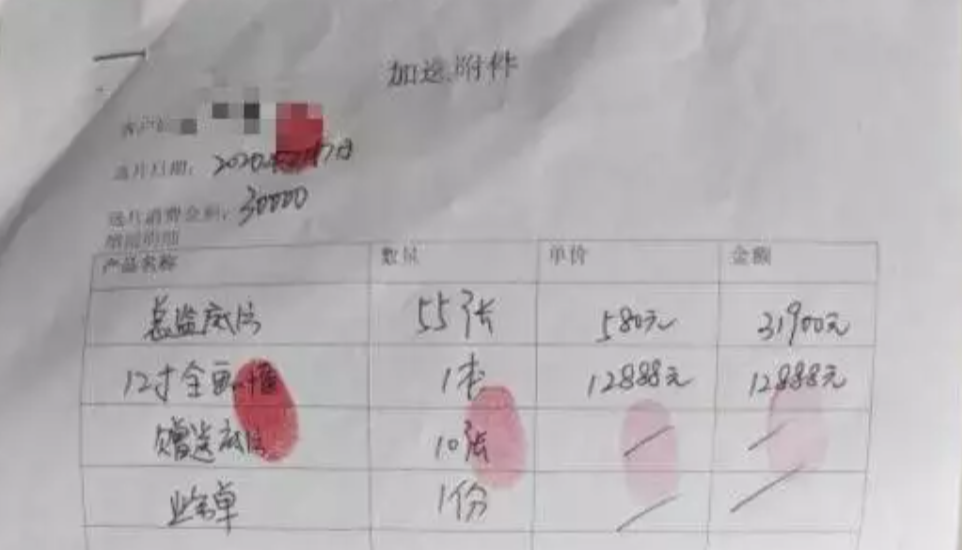 加选附件
客户
选片日期:2020
选片消费金额:30000
增加明细
产品名称 数量 单价 金额
总监底片 55张 580元 31900元
12寸全画 1本 12888元 12888元
赠送底片 10张 / /
1份 / /